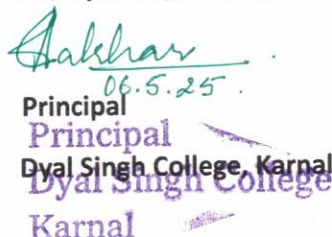 06.5.25.
Principal
Principal
Dyal Singh College, Karnal
Dyal Singh College
Karnal